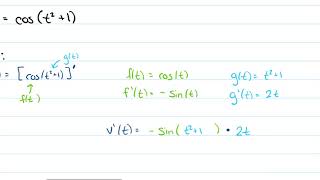 = cos(t²+1)
:
g(t)
) = [cos(t²+1)]' f(t) = cos(t) g(t) = t²+1
f(t) f'(t) = -sin(t) g'(t) = 2t
v'(t) = -sin( t²+1 ) • 2t